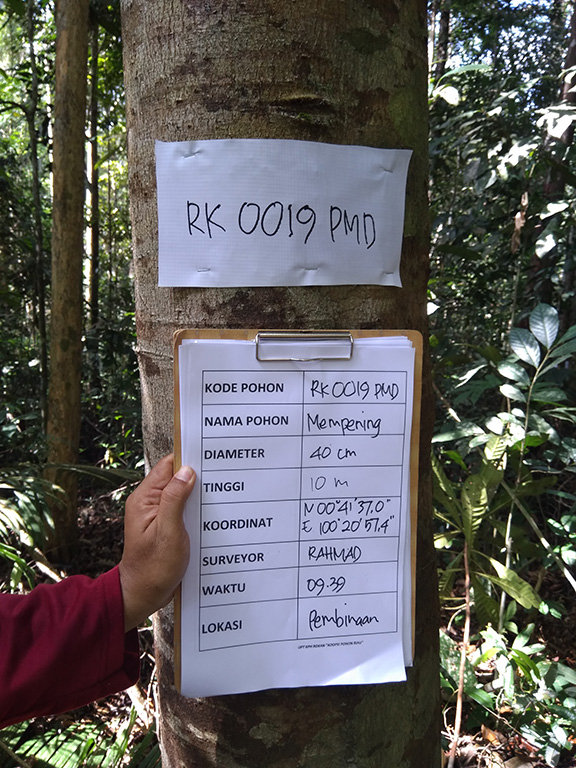 RK 0019 PMD
KODE POHON RK 0019 PMD
NAMA POHON Mempening
DIAMETER 40 cm
TINGGI 10 m
KOORDINAT N 00°41'37,0"
E 100°20'57,4"
SURVEYOR RAHMAD
WAKTU 09.39
LOKASI Pembinaan
"ADOPSI POHON RIAU"